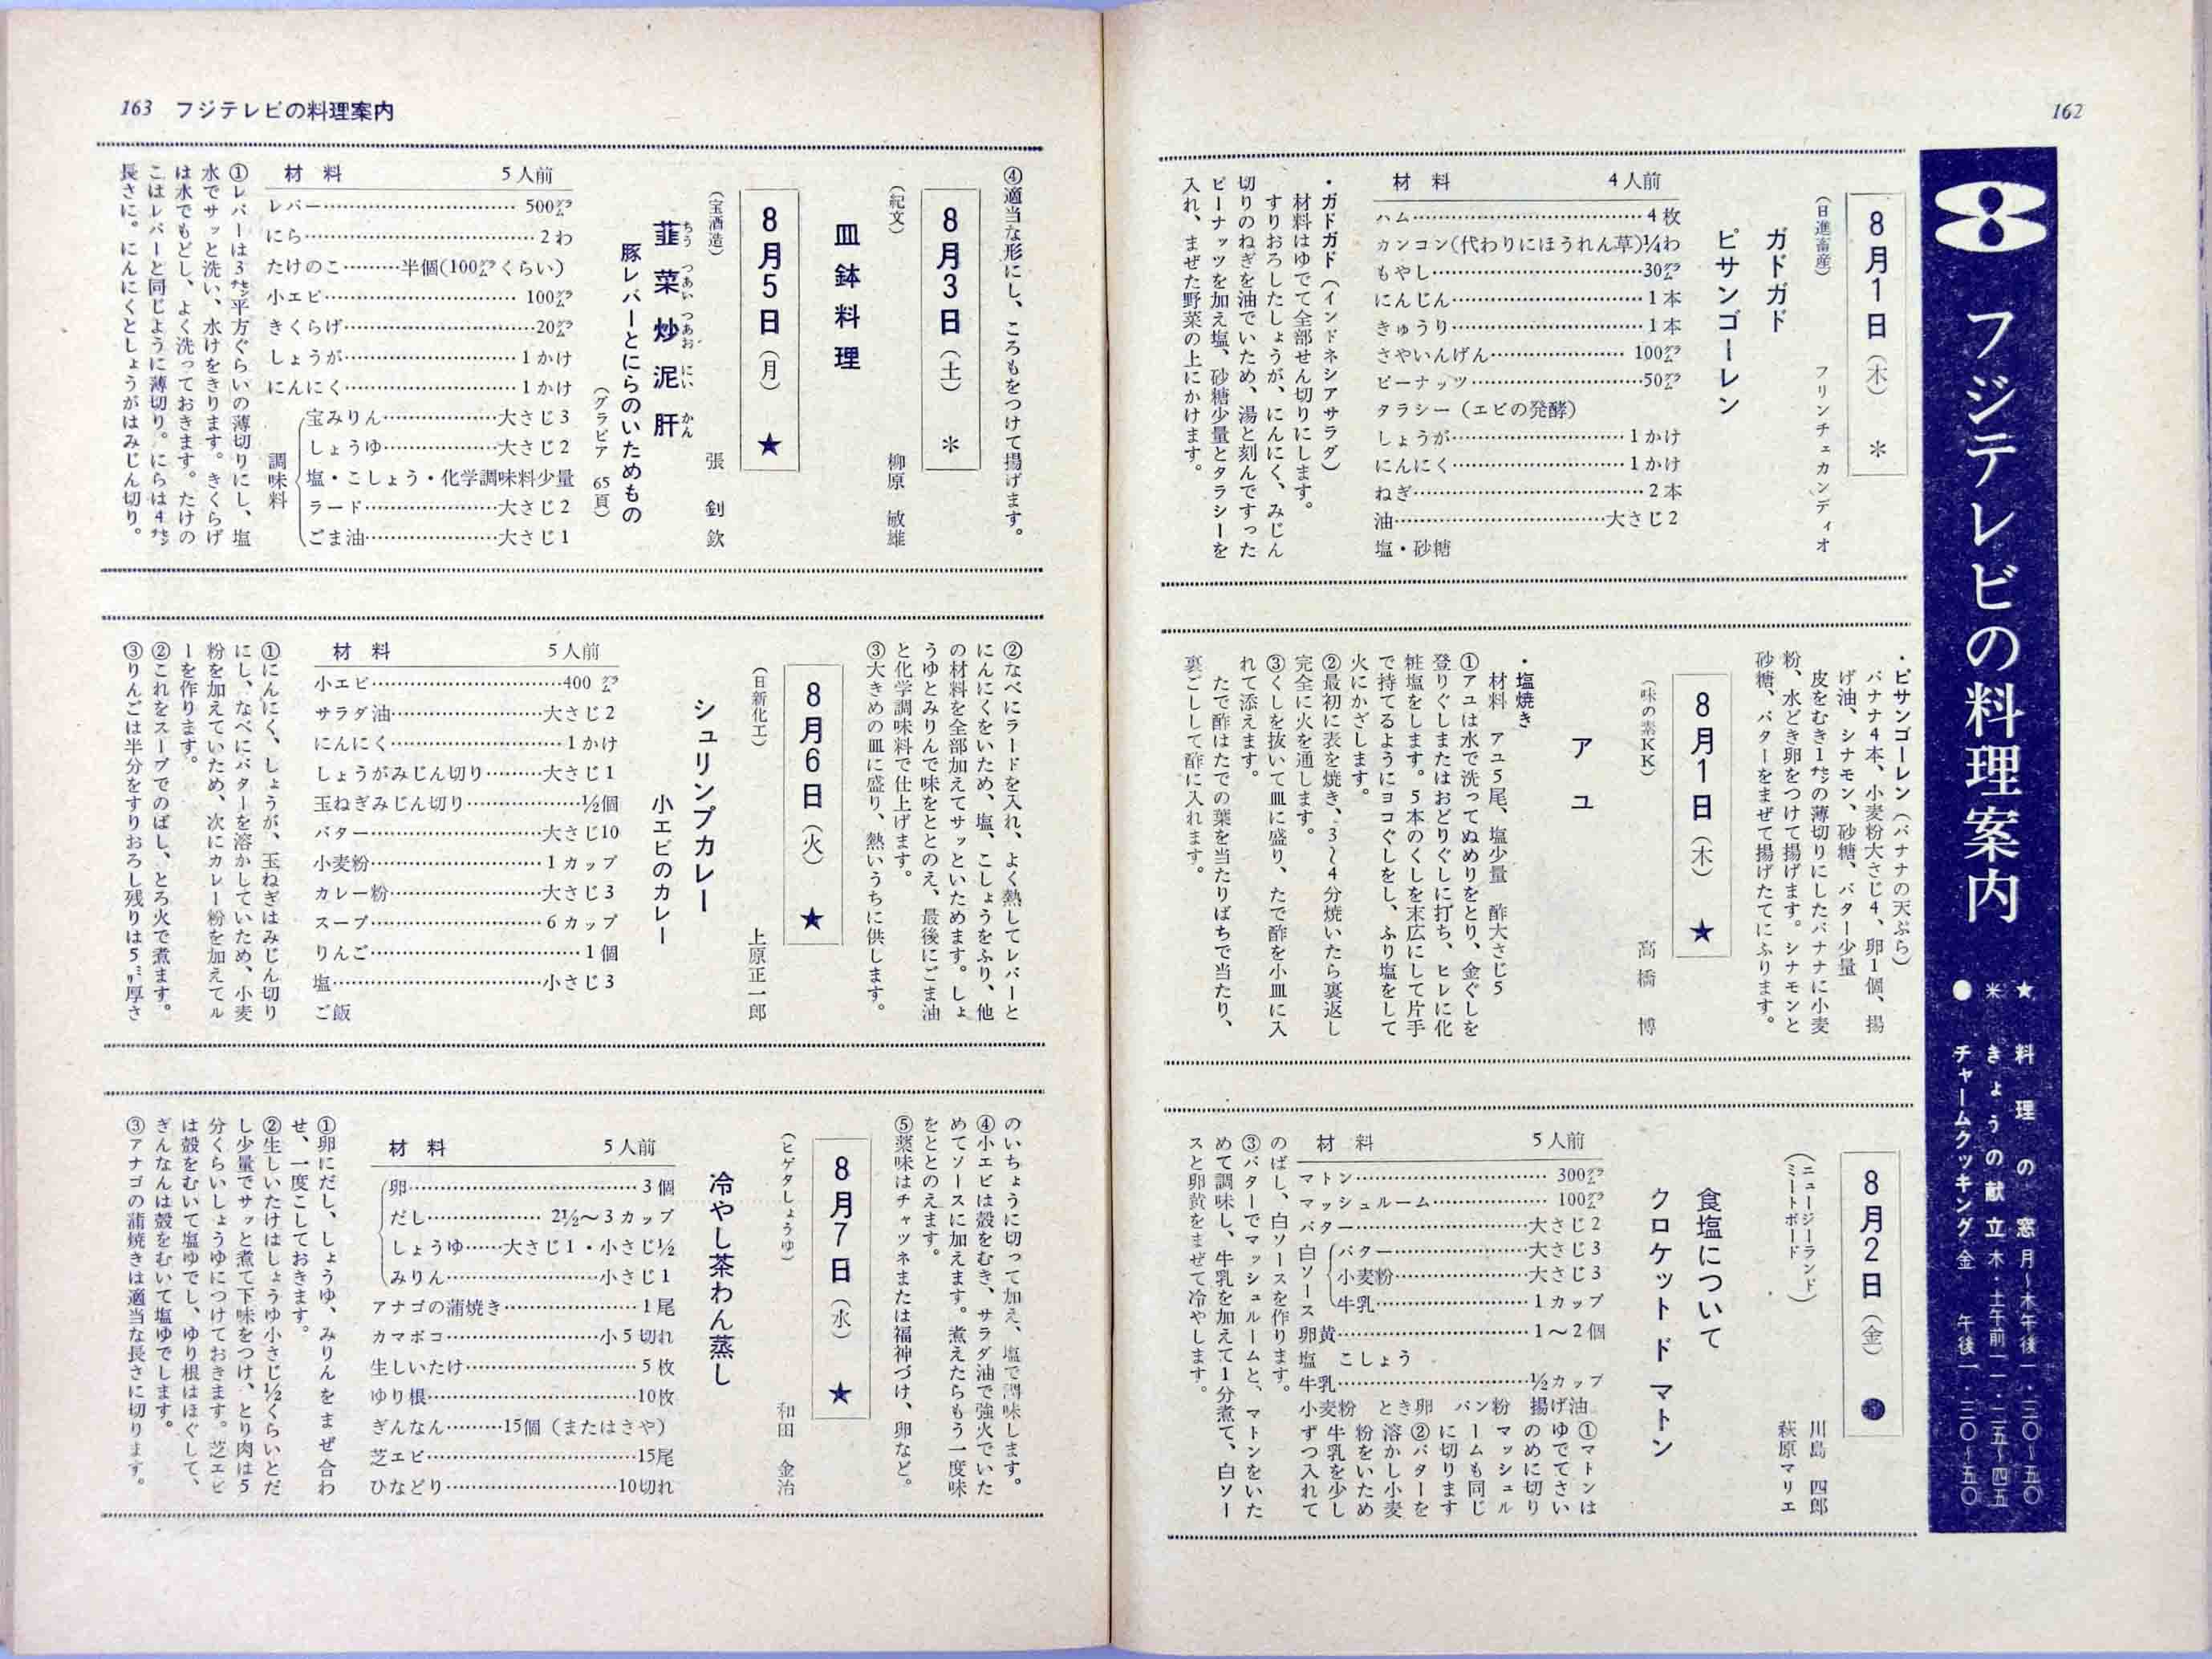 162
フジテレビの料理案内
★ 料理の窓 月〜木 午後一・三〇〜五〇
＊ きょうの献立 木・土 午前一一・二五〜四五
● チャームクッキング 金 午後一・三〇〜五〇
8月1日（木） ＊
（日進畜産） フリンチェカンディオ
ガドガド
ピサンゴーレン
材料 4人前
ハム 4枚
カンコン(代わりにほうれん草)¼わ
もやし 30グラム
にんじん 1本
きゅうり 1本
さやいんげん 100グラム
ピーナッツ 50グラム
タラシー（エビの発酵）
しょうが 1かけ
にんにく 1かけ
ねぎ 2本
油 大さじ2
塩・砂糖
・ガドガド（インドネシアサラダ）
材料はゆでて全部せん切りにします。
すりおろしたしょうが、にんにく、みじん
切りのねぎを油でいため、湯と刻んですった
ピーナッツを加え塩、砂糖少量とタラシーを
入れ、まぜた野菜の上にかけます。
・ピサンゴーレン（バナナの天ぷら）
バナナ4本、小麦粉大さじ4、卵1個、揚
げ油、シナモン、砂糖、バター少量
皮をむき1センチの薄切りにしたバナナに小麦
粉、水どき卵をつけて揚げます。シナモンと
砂糖、バターをまぜて揚げたてにふります。
8月1日（木） ★
（味の素KK） 高橋 博
アユ
・塩焼き
材料 アユ5尾、塩少量 酢大さじ5
①アユは水で洗ってぬめりをとり、金ぐしを
登りぐしまたはおどりぐしに打ち、ヒレに化
粧塩をします。5本のくしを末広にして片手
で持てるようにヨコぐしをし、ふり塩をして
火にかざします。
②最初に表を焼き、3〜4分焼いたら裏返し
完全に火を通します。
③くしを抜いて皿に盛り、たで酢を小皿に入
れて添えます。
たで酢はたでの葉を当たりばちで当たり、
裏ごしして酢に入れます。
8月2日（金） ●
（ニュージーランド
ミートボード） 川島 四郎
萩原マリエ
食塩について
クロケット ド マトン
材料 5人前
マトン 300グラム
マッシュルーム 100グラム
バター 大さじ2
白ソース
バター 大さじ3
小麦粉 大さじ3
牛乳 1カップ
卵黄 1〜2個
塩 こしょう
牛乳 ½カップ
小麦粉 とき卵 パン粉 揚げ油
①マトンは
ゆでてさい
のめに切り
マッシュル
ームも同じ
に切ります
②バターを
溶かし小麦
粉をいため
牛乳を少し
ずつ入れて
のばし、白ソースを作ります。
③バターでマッシュルームと、マトンをいた
めて調味し、牛乳を加えて1分煮て、白ソー
スと卵黄をまぜて冷やします。
163 フジテレビの料理案内
④適当な形にし、ころもをつけて揚げます。
8月3日（土） ＊
（紀文） 柳原 敏雄
皿鉢料理
8月5日（月） ★
（宝酒造） 張 釗欽
韮菜炒泥肝
ちう つあい つあお にい かん
豚レバーとにらのいためもの
（グラビア 65頁）
材料 5人前
レバー 500グラム
にら 2わ
たけのこ 半個(100グラムくらい)
小エビ 100グラム
きくらげ 20グラム
しょうが 1かけ
にんにく 1かけ
調味料
宝みりん 大さじ3
しょうゆ 大さじ2
塩・こしょう・化学調味料少量
ラード 大さじ2
ごま油 大さじ1
①レバーは3センチ平方ぐらいの薄切りにし、塩
水でサッと洗い、水けをきります。きくらげ
は水でもどし、よく洗っておきます。たけの
こはレバーと同じように薄切り。にらは4センチ
長さに。にんにくとしょうがはみじん切り。
②なべにラードを入れ、よく熱してレバーと
にんにくをいため、塩、こしょうをふり、他
の材料を全部加えてサッといためます。しょ
うゆとみりんで味をととのえ、最後にごま油
と化学調味料で仕上げます。
③大きめの皿に盛り、熱いうちに供します。
8月6日（火） ★
（日新化工） 上原正一郎
シュリンプカレー
小エビのカレー
材料 5人前
小エビ 400グラム
サラダ油 大さじ2
にんにく 1かけ
しょうがみじん切り 大さじ1
玉ねぎみじん切り ½個
バター 大さじ10
小麦粉 1カップ
カレー粉 大さじ3
スープ 6カップ
りんご 1個
塩 小さじ3
ご飯
①にんにく、しょうが、玉ねぎはみじん切り
にし、なべにバターを溶かしていため、小麦
粉を加えていため、次にカレー粉を加えてル
ーを作ります。
②これをスープでのばし、とろ火で煮ます。
③りんごは半分をすりおろし残りは5ミリ厚さ
のいちょうに切って加え、塩で調味します。
④小エビは殻をむき、サラダ油で強火でいた
めてソースに加えます。煮えたらもう一度味
をととのえます。
⑤薬味はチャツネまたは福神づけ、卵など。
8月7日（水） ★
（ヒゲタしょうゆ） 和田 金治
冷やし茶わん蒸し
材料 5人前
卵 3個
だし 2½〜3カップ
しょうゆ 大さじ1・小さじ½
みりん 小さじ1
アナゴの蒲焼き 1尾
カマボコ 小5切れ
生しいたけ 5枚
ゆり根 10枚
ぎんなん 15個（またはさや）
芝エビ 15尾
ひなどり 10切れ
①卵にだし、しょうゆ、みりんをまぜ合わ
せ、一度こしておきます。
②生しいたけはしょうゆ小さじ½くらいとだ
し少量でサッと煮て下味をつけ、とり肉は5
分くらいしょうゆにつけておきます。芝エビ
は殻をむいて塩ゆでし、ゆり根はほぐして、
ぎんなんは殻をむいて塩ゆでします。
③アナゴの蒲焼きは適当な長さに切ります。